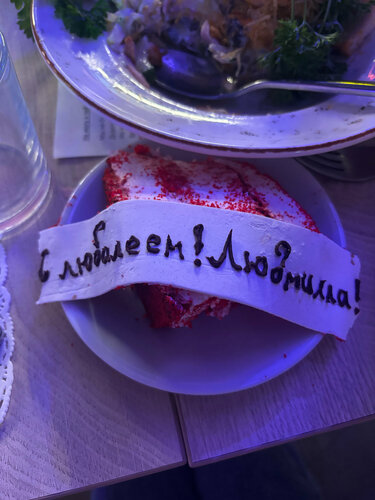 С любалеем! Людмилла!